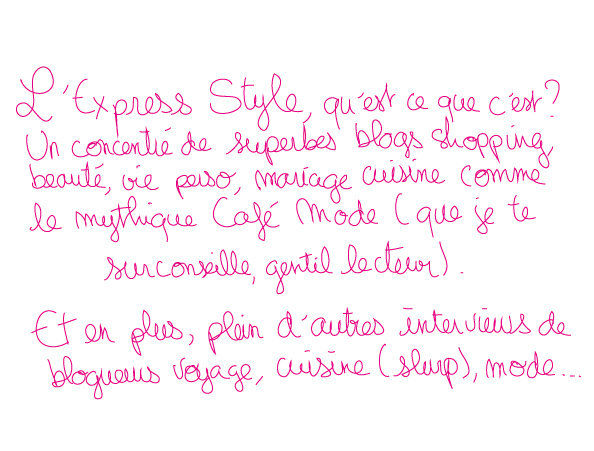 L'Express Style, qu'est ce que c'est?
Un concentré de superbes blogs shopping,
beauté, vie perso, mariage cuisine comme
le mythique Café Mode (que je te
surconseille, gentil lecteur).
Et en plus, plein d'autres interviews de
blogueurs voyage, cuisine (slurp), mode...